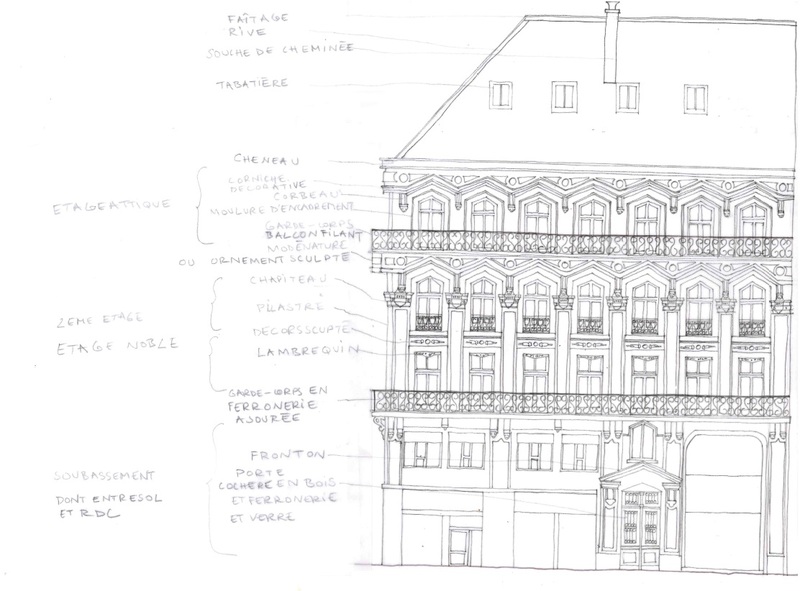 FAÎTAGE
RIVE
SOUCHE DE CHEMINÉE
TABATIÈRE
CHENEAU
CORNICHE
DECORATIVE
CORBEAU
ETAGE ATTIQUE
MOULURE D'ENCADREMENT
GARDE-CORPS
BALCON FILANT
MODÉNATURE
OU ORNEMENT SCULPTÉ
CHAPITEAU
PILASTRE
2EME ETAGE
DECORS SCUPTÉ
ETAGE NOBLE
LAMBREQUIN
GARDE-CORPS EN
FERRONERIE
AJOURÉE
FRONTON
SOUBASSEMENT
PORTE
COCHERE EN BOIS
DONT ENTRESOL
ET FERRONERIE
ET RDC
ET VERRE